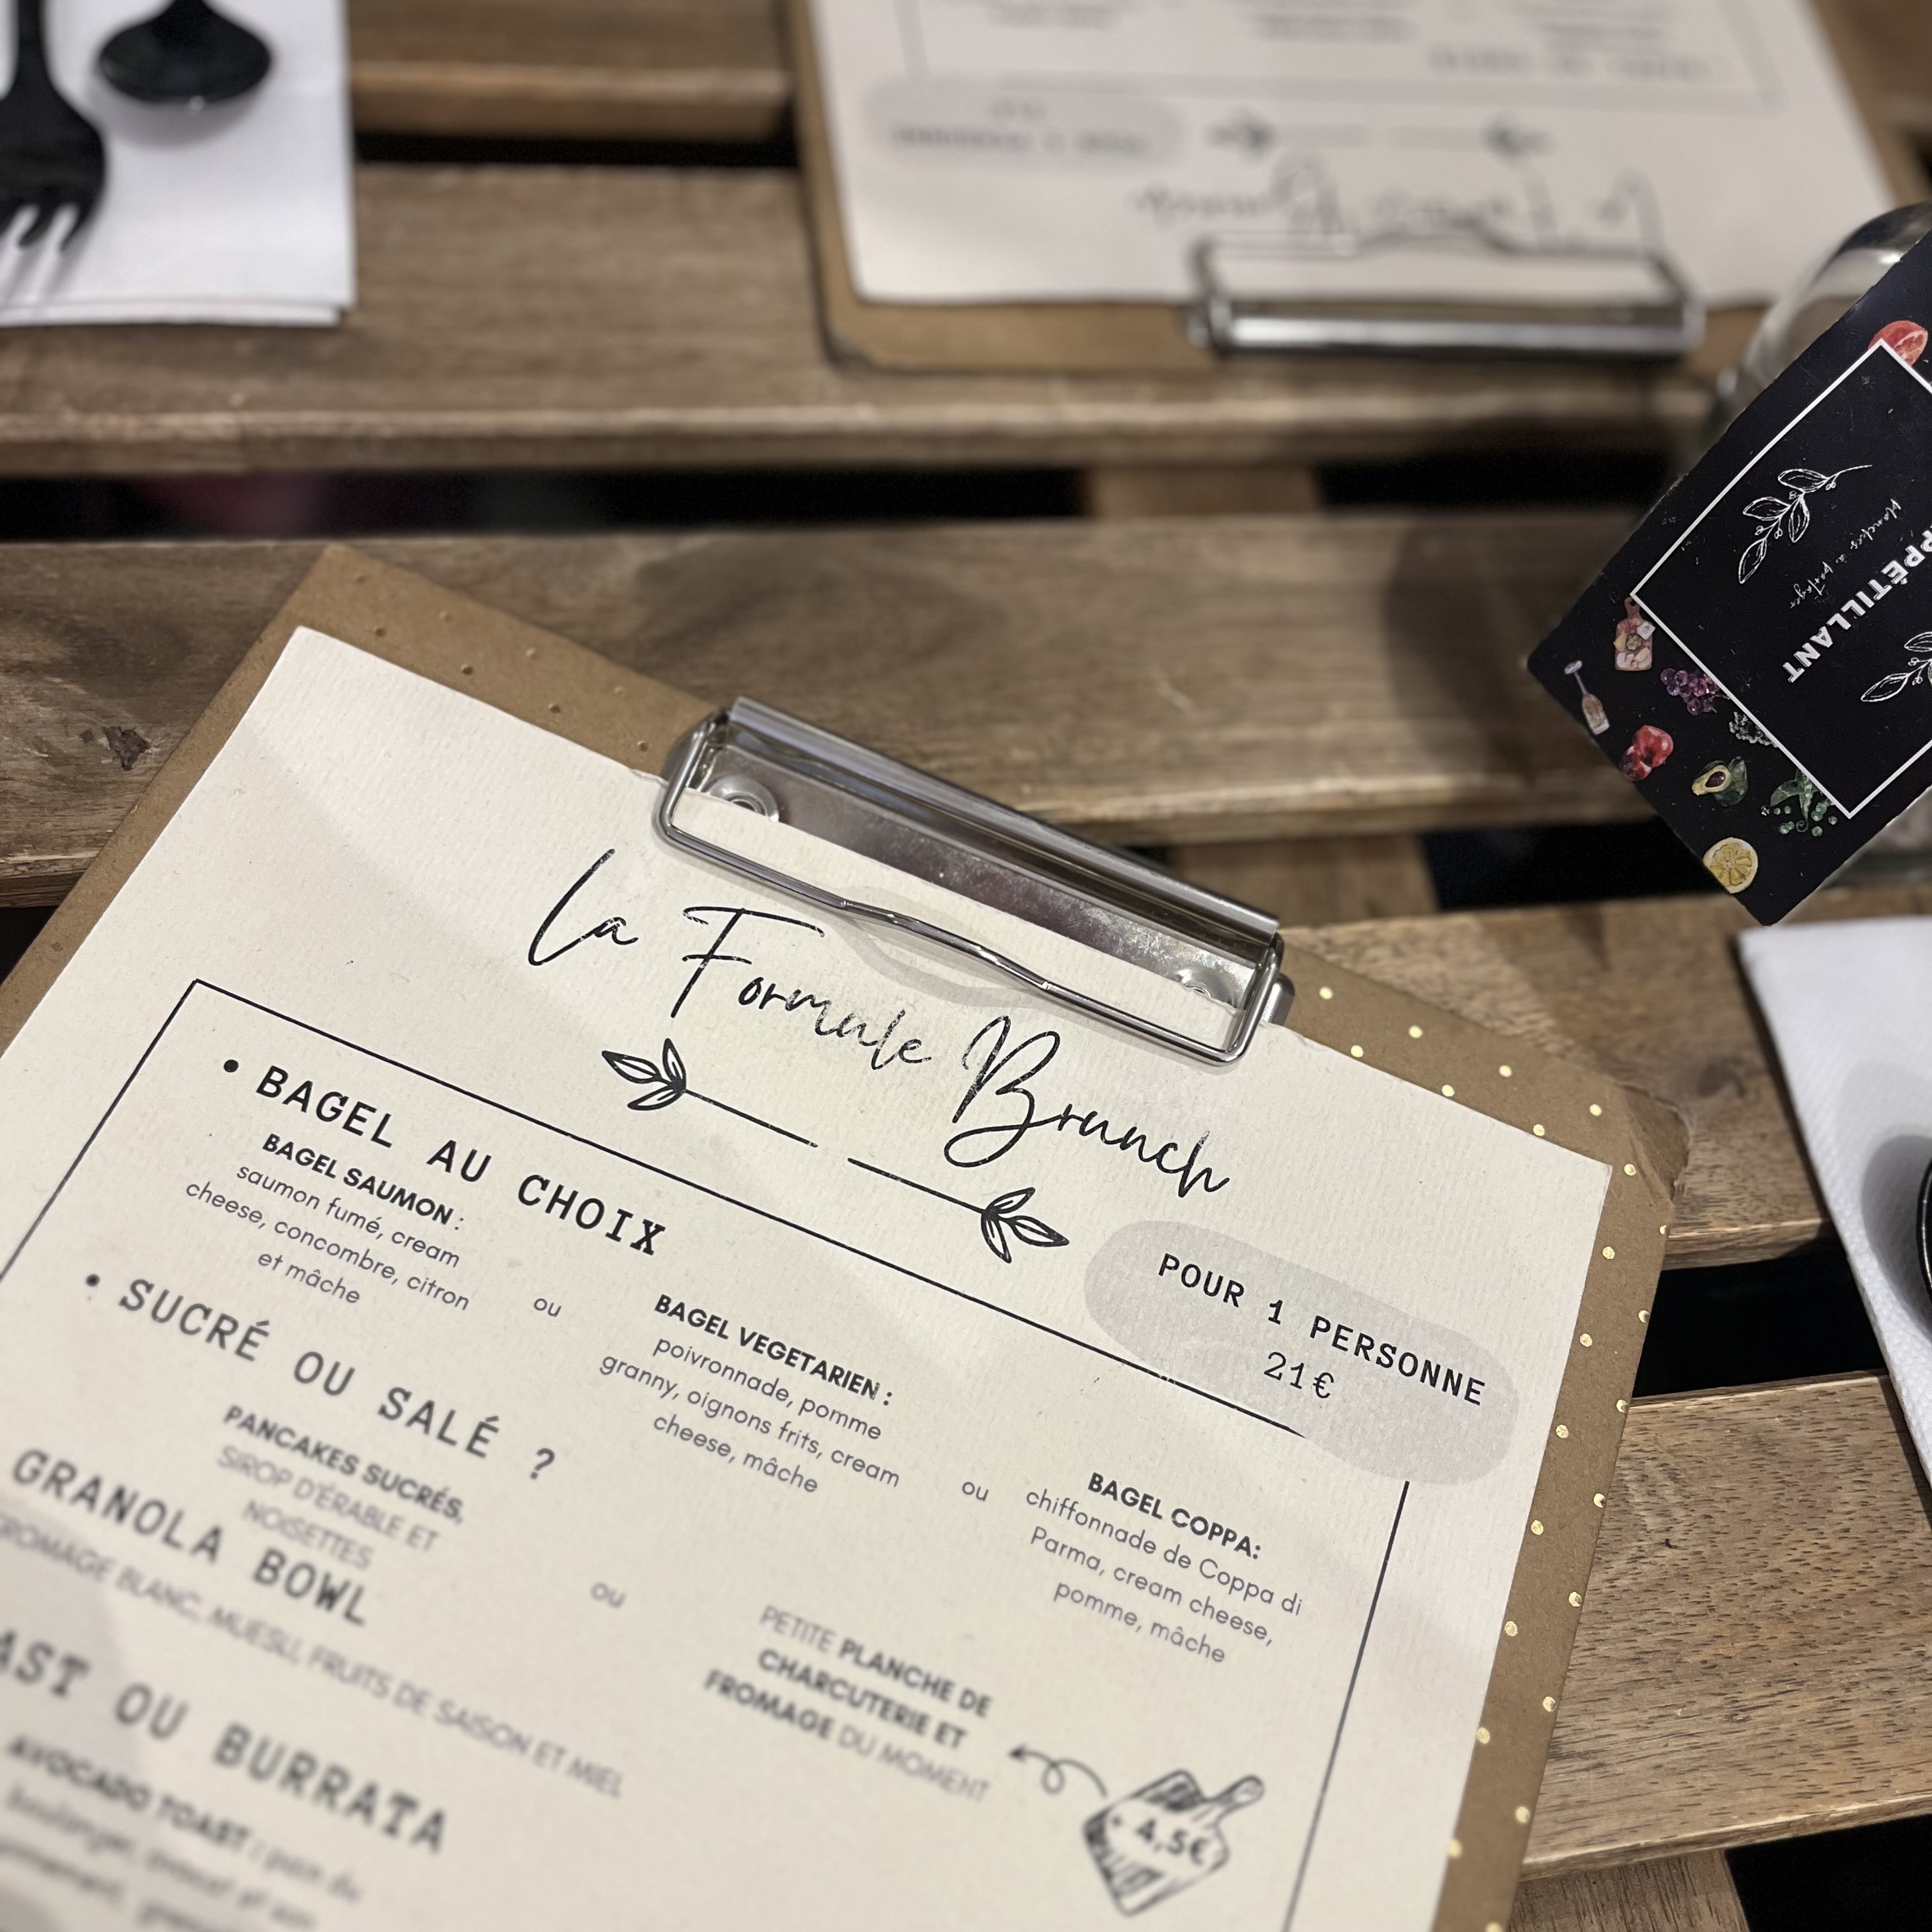 La Formule Brunch
POUR 1 PERSONNE
21€
• BAGEL AU CHOIX
BAGEL SAUMON :
saumon fumé, cream
cheese, concombre, citron
et mâche
ou
BAGEL VEGETARIEN :
poivronnade, pomme
granny, oignons frits, cream
cheese, mâche
ou
BAGEL COPPA:
chiffonnade de Coppa di
Parma, cream cheese,
pomme, mâche
• SUCRÉ OU SALÉ ?
PANCAKES SUCRÉS,
SIROP D'ÉRABLE ET
NOISETTES
ou
PETITE PLANCHE DE
CHARCUTERIE ET
FROMAGE DU MOMENT
+ 4,5€
GRANOLA BOWL
FROMAGE BLANC, MUESLI, FRUITS DE SAISON ET MIEL
OU BURRATA
AVOCADO TOAST : pain du
PPÉTILLANT
Planches à partager